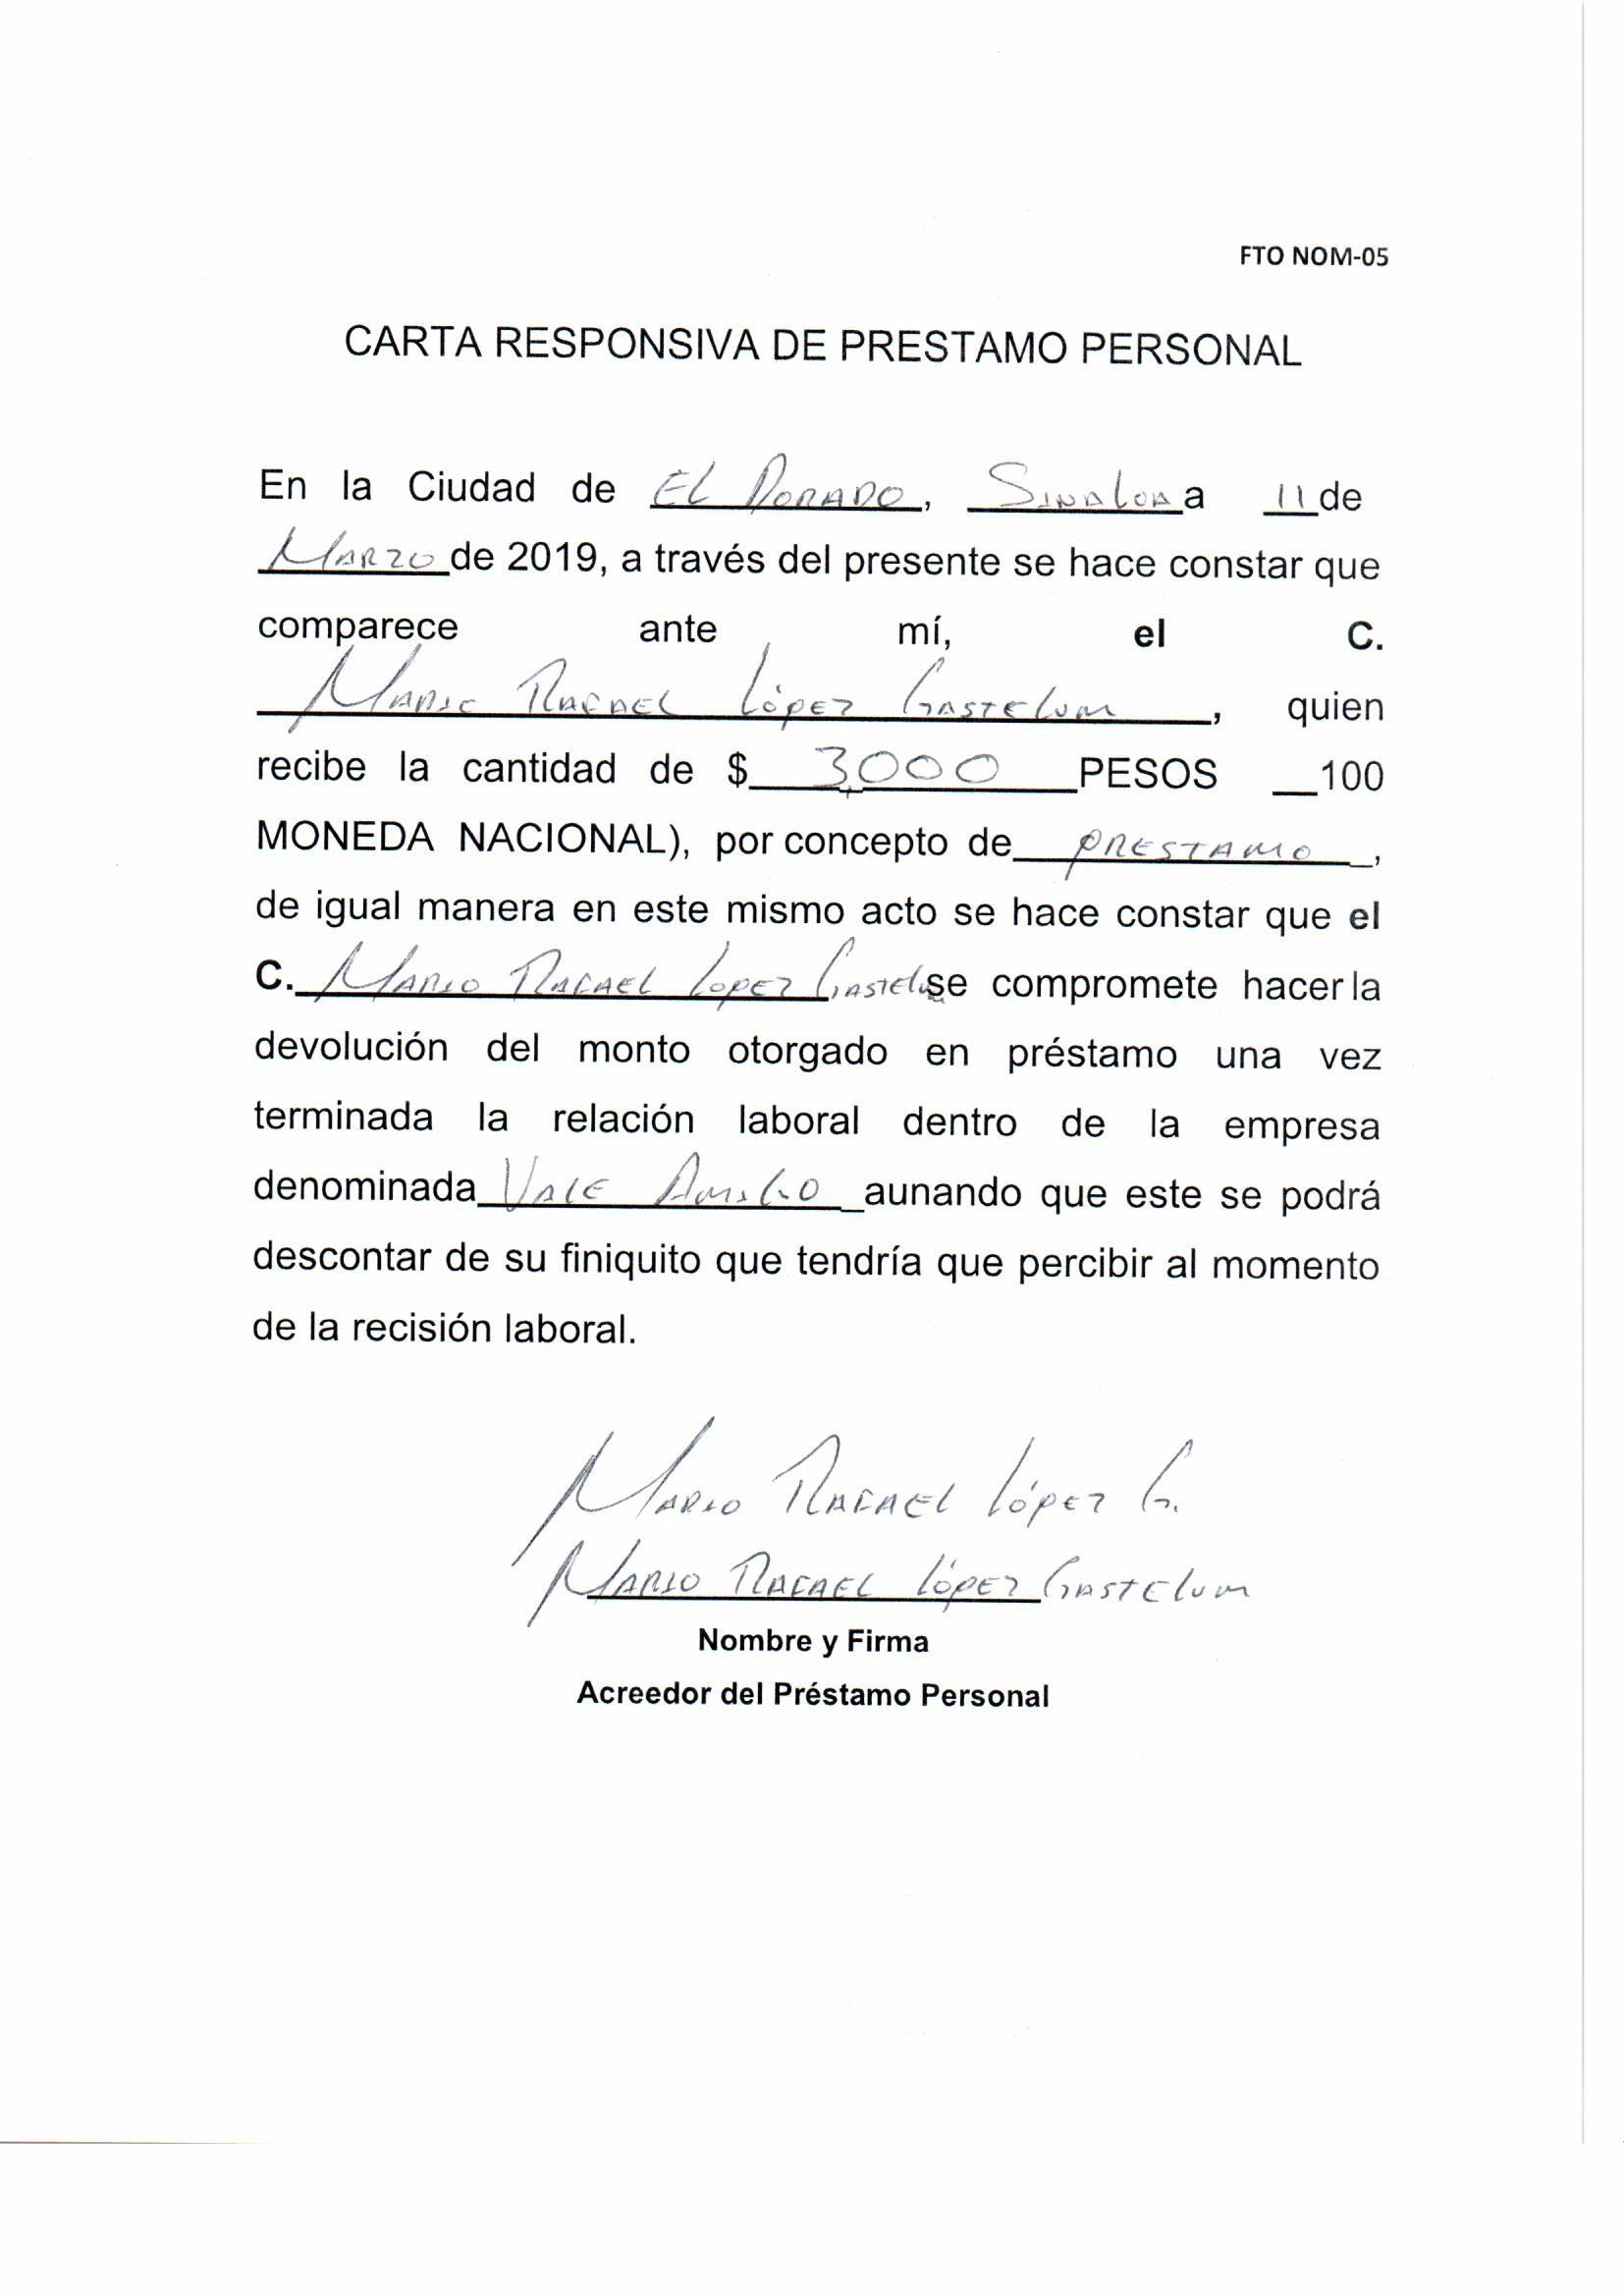 FTO NOM-05
CARTA RESPONSIVA DE PRESTAMO PERSONAL
En la Ciudad de El Dorado, Sinaloa a 11 de
Marzo de 2019, a través del presente se hace constar que
comparece ante mí, el C.
Mario Rafael López Gastelum, quien
recibe la cantidad de $ 3,000 PESOS __100
MONEDA NACIONAL), por concepto de prestamo,
de igual manera en este mismo acto se hace constar que el
C. Mario Rafael Lopez Gastelum se compromete hacer la
devolución del monto otorgado en préstamo una vez
terminada la relación laboral dentro de la empresa
denominada Vale Amigo aunando que este se podrá
descontar de su finiquito que tendría que percibir al momento
de la recisión laboral.
Mario Rafael López G.
Mario Rafael López Gastelum
Nombre y Firma
Acreedor del Préstamo Personal